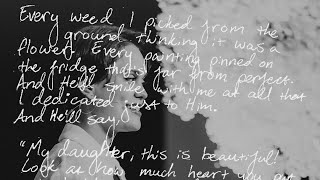 Every weed I picked from the
ground thinking it was a
flower. Every painting pinned on
the fridge that's far from perfect.
And He'll smile with me at all that
I dedicated just to Him.
And He'll say,
"My daughter, this is beautiful!
Look at how much heart you put